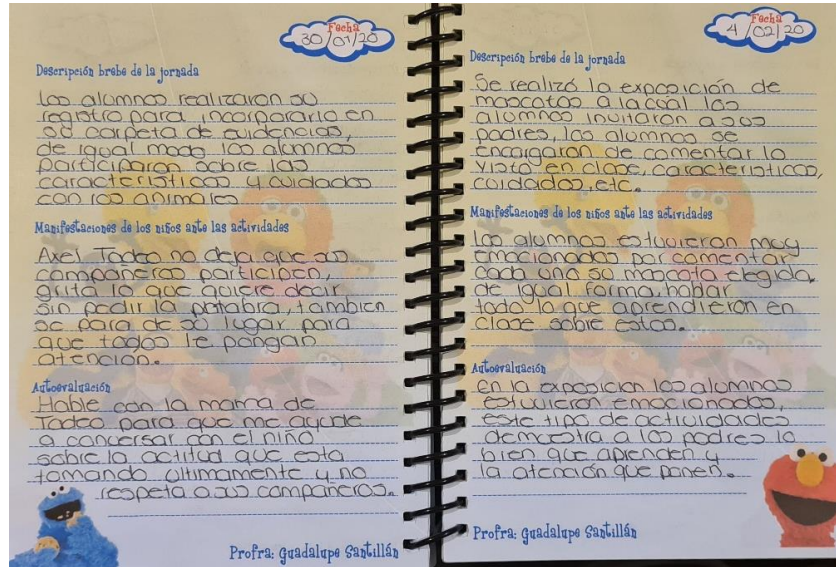 Fecha
30/01/20
Descripción brebe de la jornada
Los alumnos realizaron su
registro para incorporarlo en
su carpeta de evidencias,
de igual modo los alumnos
participaron sobre las
características y cuidados
con los animales
Manifestaciones de los niños ante las actividades
Axel Tadeo no deja que sus
compañeros participen,
grita lo que quiere decir
sin pedir la palabra, tambien
se para de su lugar para
que todos le pongan
atención.
Autoevaluación
Hable con la mamá de
Tadeo para que me ayude
a conversar con el niño
sobre la actitud que esta
tomando ultimamente y no
respeta a sus compañeros.
Profra: Guadalupe Santillán
Fecha
4/02/20
Descripción brebe de la jornada
Se realizó la exposición de
mascotas a la cual los
alumnos invitaron a sus
padres, los alumnos se
encargaron de comentar lo
visto en clase, características,
cuidados, etc.
Manifestaciones de los niños ante las actividades
los alumnos estuvieron muy
emocionados por comentar
cada uno su mascota elegida,
de igual forma, hablar
todo lo que aprendieron en
clase sobre estos.
Autoevaluación
En la exposición los alumnos
estuvieron emocionados,
este tipo de actividades
demuestra a los padres lo
bien que aprenden y
la atención que ponen.
Profra: Guadalupe Santillán